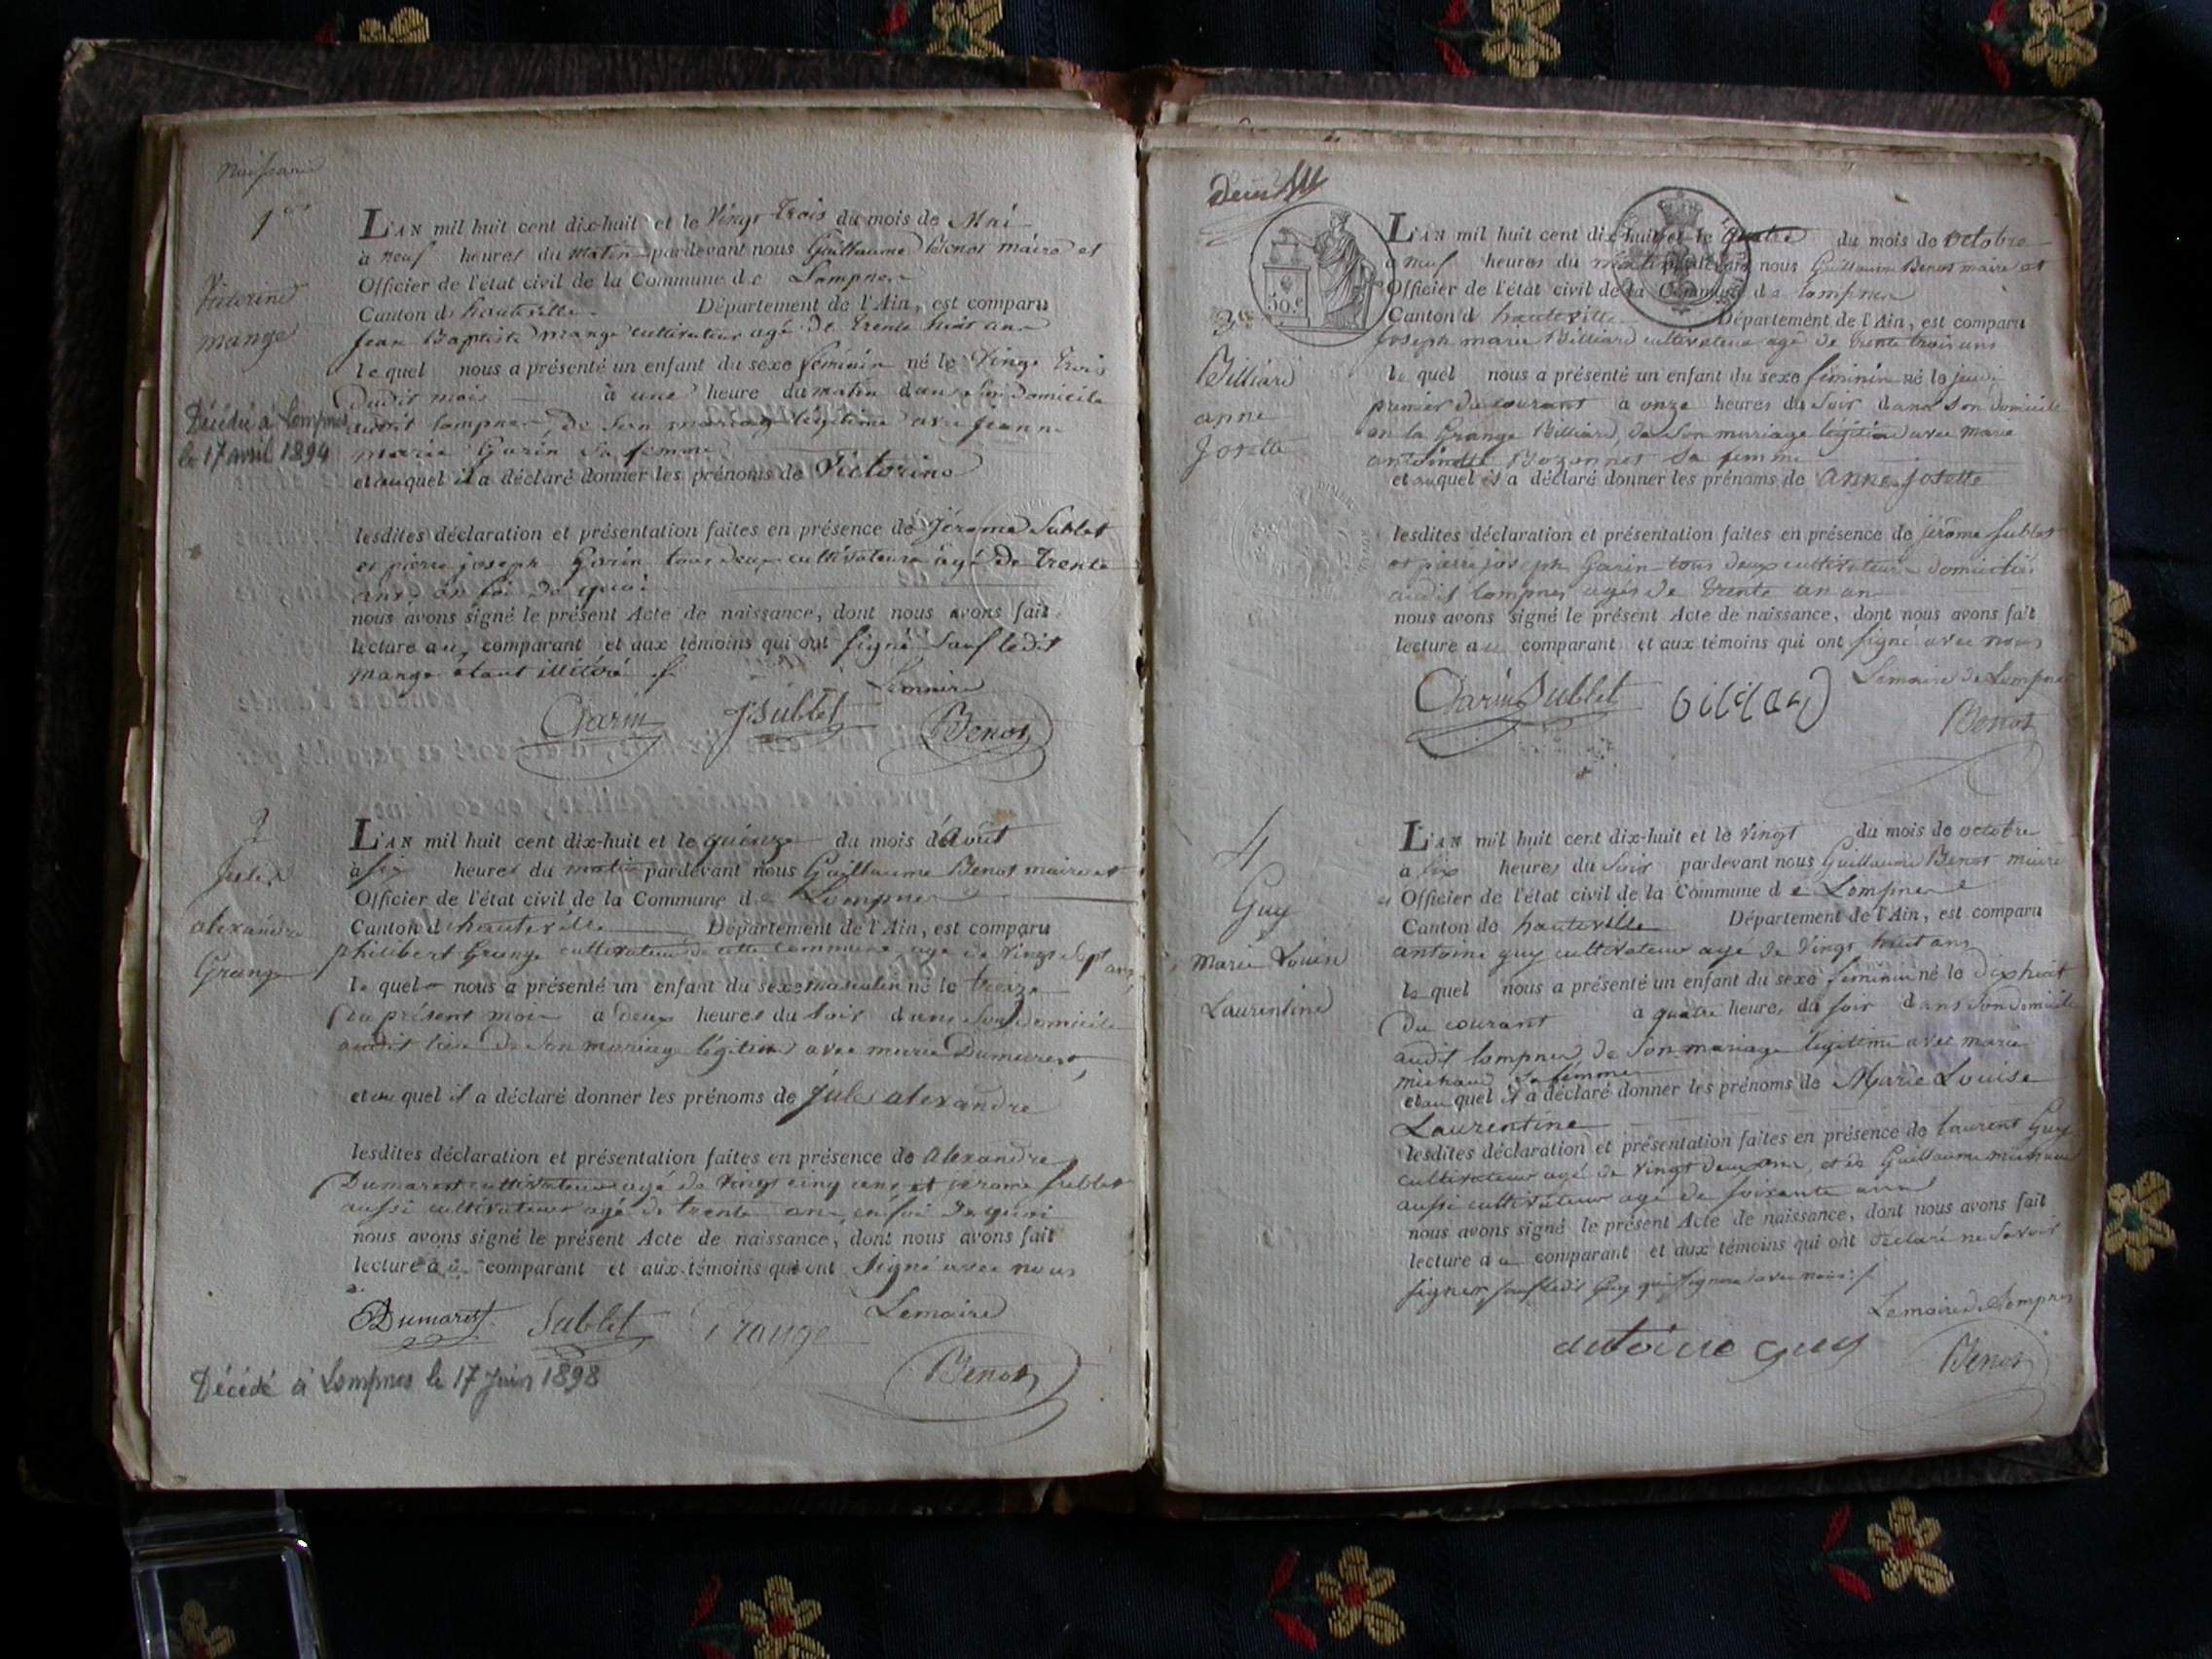 Naissance
1er
Victorine
mange
Décédée à Lompnes
le 17 avril 1894
L'AN mil huit cent dix-huit et le Vingt trois du mois de Mai
à neuf heures du matin pardevant nous Guillaume Benot maire et
Officier de l'état civil de la Commune de Lompnes
Canton d hauteville Département de l'Ain, est comparu
Jean Baptiste mange cultivateur agé de trente huit ans
lequel nous a présenté un enfant du sexe féminin né le Vingt trois
dudit mois à une heure du matin dans son Domicile
audit lompnes, de son mariage légitime avec jeanne
marie Garin sa femme
et auquel il a déclaré donner les prénoms de Victorine
lesdites déclaration et présentation faites en présence de Jérome Sublet
et pierre joseph Garin tous deux cultivateurs agé de trente
ans en foi de quoi
nous avons signé le présent Acte de naissance, dont nous avons fait
lecture au comparant et aux témoins qui ont signé sauf ledit
mange étant illitéré
Lemaire
Garin J Sublet Benot
2
Jules
alexandre
Grange
L'AN mil huit cent dix-huit et le quinze du mois d'Août
à six heures du matin pardevant nous Guillaume Benot maire et
Officier de l'état civil de la Commune de Lompnes
Canton d hauteville Département de l'Ain, est comparu
philibert Grange cultivateur de cette commune agé de vingt sept ans
lequel nous a présenté un enfant du sexe masculin né le treize
du présent mois à deux heures du soir dans son domicile
audit lieu de son mariage légitime avec marie Dumarest
et au quel il a déclaré donner les prénoms de jules alexandre
lesdites déclaration et présentation faites en présence de alexandre
Dumarest cultivateur agé de vingt cinq ans et jérome sublet
aussi cultivateur agé de trente ans, en foi de quoi
nous avons signé le présent Acte de naissance, dont nous avons fait
lecture au comparant et aux témoins qui ont signé avec nous
Lemaire
Dumarest Sublet Grange
Benot
Décédé à Lompnes le 17 Juin 1898
Deux
50.c
3e
Billiard
anne
Josette
L'AN mil huit cent dix-huit et le quatre du mois de octobre
à neuf heures du matin pardevant nous Guillaume Benot maire et
Officier de l'état civil de la Commune de lompnes
Canton d hauteville Département de l'Ain, est comparu
Joseph marie Billiard cultivateur agé de trente trois ans
lequel nous a présenté un enfant du sexe féminin né le jeudi
premier du courant à onze heures du soir dans son domicile
en la Grange Billiard, de son mariage légitime avec marie
antoinette Bozonnet sa femme
et auquel il a déclaré donner les prénoms de anne josette
lesdites déclaration et présentation faites en présence de jérôme sublet
et pierre joseph Garin tous deux cultivateurs domiciliés
audit lompnes agés de trente an
nous avons signé le présent Acte de naissance, dont nous avons fait
lecture au comparant et aux témoins qui ont signé avec nous
Lemaire de Lompnes
Garin Sublet Benot
4
Guy
Marie Louise
Laurentine
L'AN mil huit cent dix-huit et le vingt du mois de octobre
à six heures du soir pardevant nous Guillaume Benot maire
et Officier de l'état civil de la Commune de Lompnes
Canton de hauteville Département de l'Ain, est comparu
antoine guy cultivateur agé de vingt huit ans
lequel nous a présenté un enfant du sexe féminin né le dix huit
du courant à quatre heure, du soir dans son domicile
audit lompnes, de son mariage légitime avec marie
michaud sa femme
et au quel il a déclaré donner les prénoms de Marie Louise
Laurentine
lesdites déclaration et présentation faites en présence de laurent Guy
cultivateur agé de vingt deux ans, et de Guillaume michaud
aussi cultivateur agé de soixante ans
nous avons signé le présent Acte de naissance, dont nous avons fait
lecture au comparant et aux témoins qui ont déclaré ne savoir
signer sauf ledit Guy qui signera avec nous
Lemaire de Lompnes
antoine guy Benot